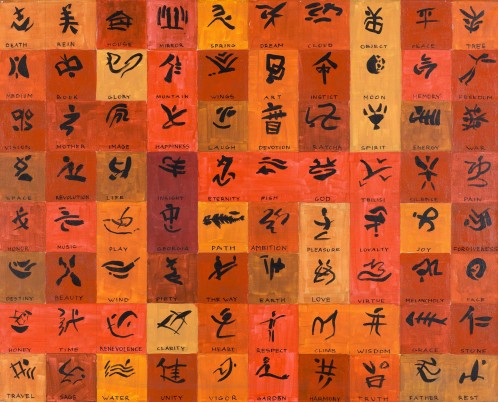 DEATH REIN HOUSE MIRROR SPRING DREAM CLOUD OBJECT PEACE TREE
MEDIUM RULE GLORY MOUNTAIN WINGS ART MOON MEMORY FREEDOM
VISION MOTHER IMAGE HAPPINESS LAUGH DEVOTION SPIRIT ENERGY WAR
SPACE REVOLUTION LIFE INSIGHT ETERNITY GOD PAIN
HONOR MUSIC PLAY PATH AMBITION PLEASURE LOYALTY JOY FORGIVENESS
DESTINY BEAUTY WIND PIETY THE WAY EARTH LOVE VIRTUE MELANCHOLY
TIME BENEVOLENCE CLARITY HEART RESPECT CLIMB WISDOM GRACE STONE
TRAVEL SAGE WATER UNITY VIGOR GARDEN HARMONY TRUTH FATHER REST